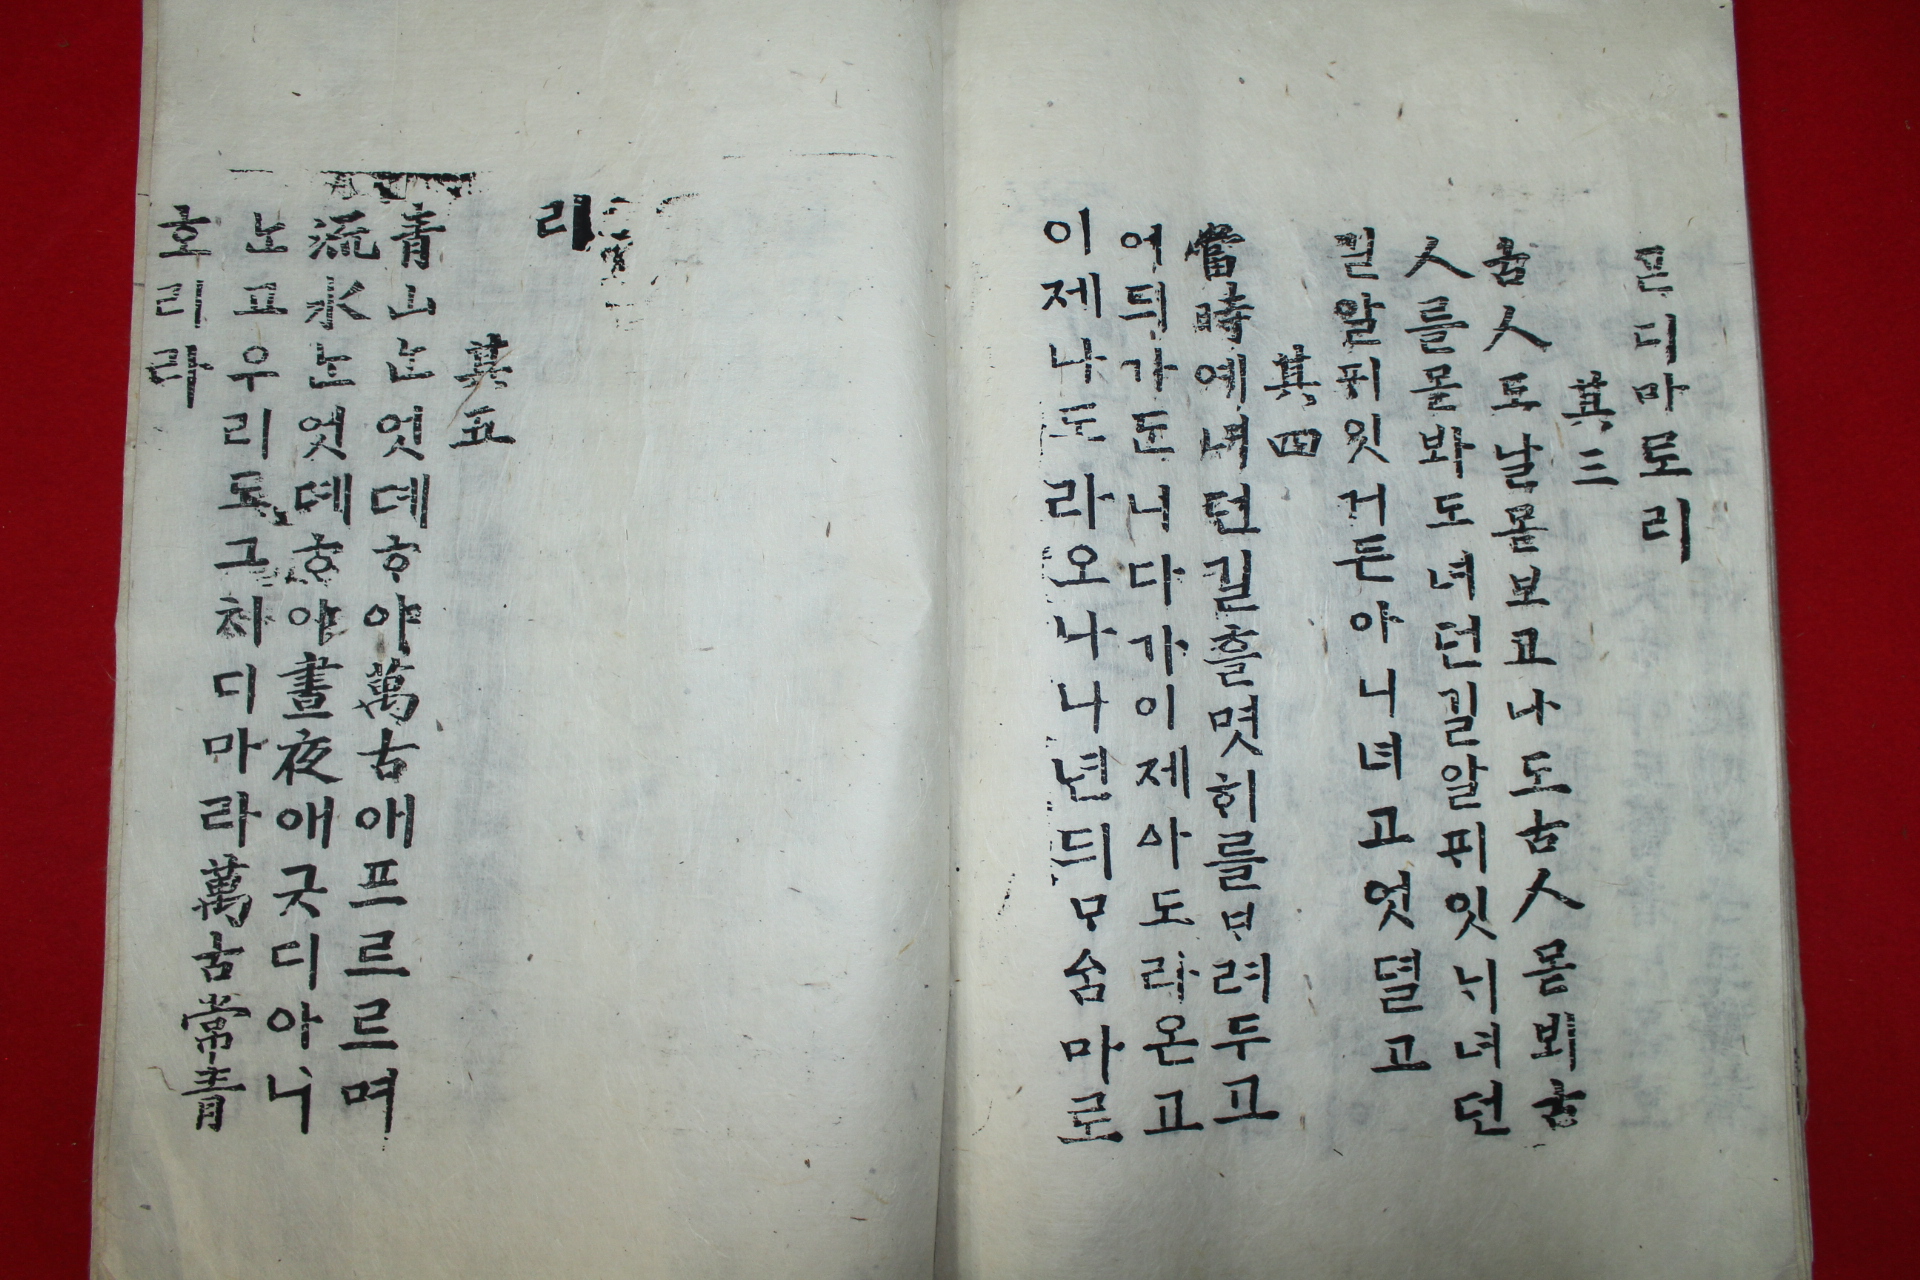 ᄀᆞᆮ디마로리
其三
古人도날몯보고나도古人몯뵈古
人를몯봐도녀던길알ᄑᆡ잇ᄂᆡ녀던
길알ᄑᆡ잇거든아니녀고엇뎔고
其四
當時예녀던길흘몃ᄒᆡ를ᄇᆞ려두고
어듸가ᄃᆞᆫ니다가이제아도라온고
이제나도라오나나년듸ᄆᆞᅀᆞᆷ마로
리
其五
靑山ᄂᆞᆫ엇뎨ᄒᆞ야萬古애프르르며
流水ᄂᆞᆫ엇뎨ᄒᆞ야晝夜애긋디아니
ᄂᆞᆫ고우리도그치디마라萬古常靑
호리라